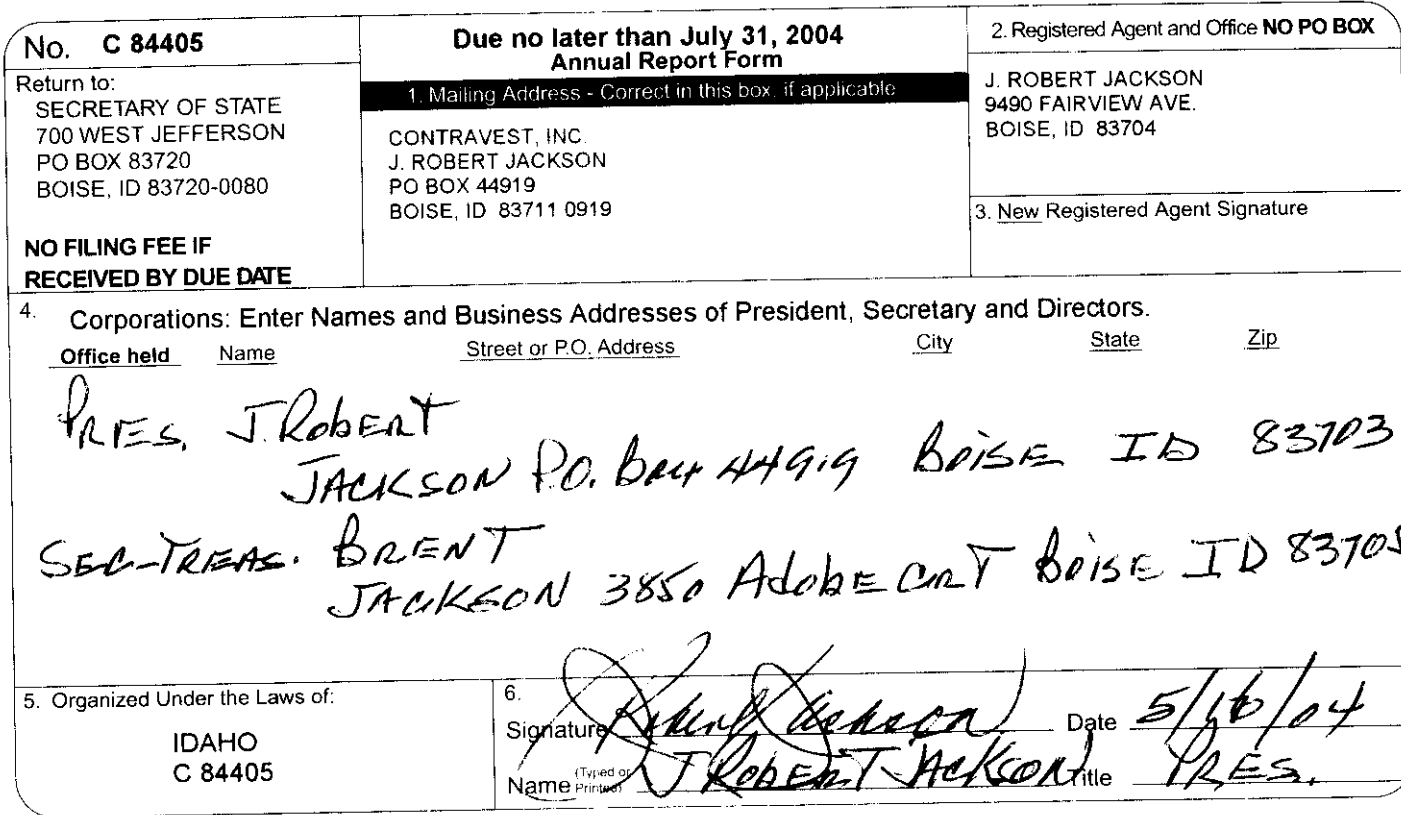 No. C 84405
Return to:
SECRETARY OF STATE
700 WEST JEFFERSON
PO BOX 83720
BOISE, ID 83720-0080
NO FILING FEE IF
RECEIVED BY DUE DATE
Due no later than July 31, 2004
Annual Report Form
1. Mailing Address - Correct in this box, if applicable
CONTRAVEST, INC.
J. ROBERT JACKSON
PO BOX 44919
BOISE, ID 83711 0919
2. Registered Agent and Office NO PO BOX
J. ROBERT JACKSON
9490 FAIRVIEW AVE.
BOISE, ID 83704
3. New Registered Agent Signature
4. Corporations: Enter Names and Business Addresses of President, Secretary and Directors.
Office held Name Street or P.O. Address City State Zip
PRES. J. ROBERT
JACKSON P.O. Box 44919 BOISE ID 83703
SEC-TREAS. BRENT
JACKSON 3850 Adobe CRT BOISE ID 83705
5. Organized Under the Laws of:
IDAHO
C 84405
6.
Signature Robert Jackson Date 5/16/04
Name (Typed or Printed) J ROBERT JACKSON Title PRES.